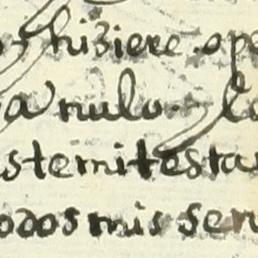 hiziere ope
a nulo. y lo
stemitesta
odos mis sen